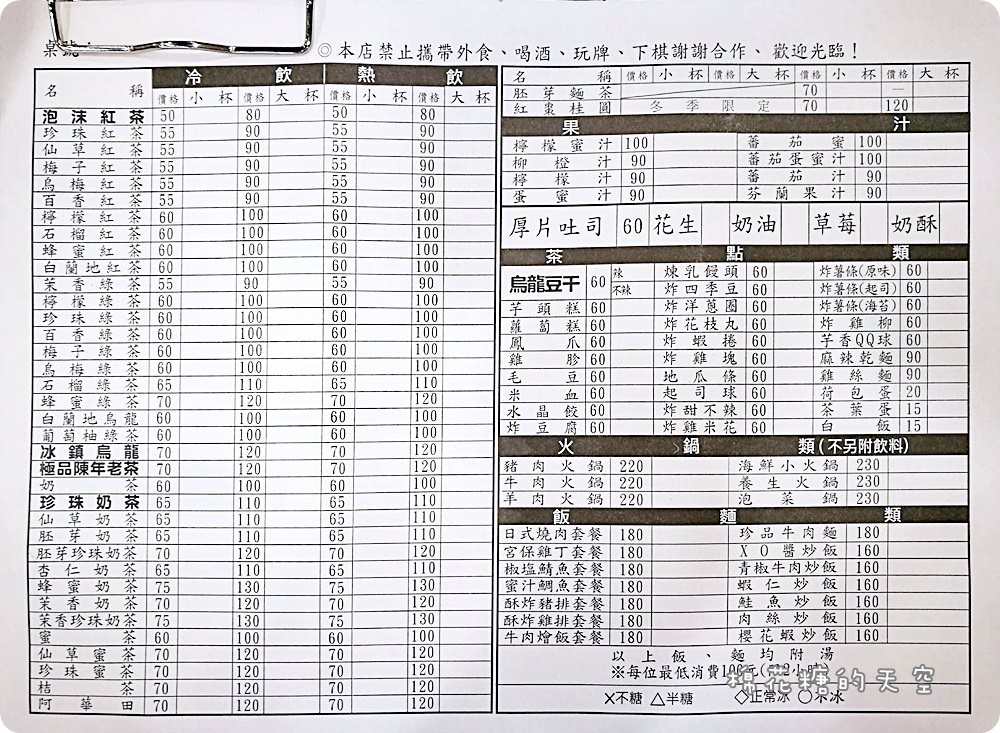 桌號：
◎本店禁止攜帶外食、喝酒、玩牌、下棋謝謝合作、歡迎光臨！
名稱 冷飲 熱飲
價格 小杯 價格 大杯 價格 小杯 價格 大杯
泡沫紅茶 50 80 50 80
珍珠紅茶 55 90 55 90
仙草紅茶 55 90 55 90
梅子紅茶 55 90 55 90
烏梅紅茶 55 90 55 90
百香紅茶 55 90 55 90
檸檬紅茶 60 100 60 100
石榴紅茶 60 100 60 100
蜂蜜紅茶 60 100 60 100
白蘭地紅茶 60 100 60 100
茉香綠茶 55 90 55 90
檸檬綠茶 60 100 60 100
珍珠綠茶 60 100 60 100
百香綠茶 60 100 60 100
梅子綠茶 60 100 60 100
烏梅綠茶 60 100 60 100
石榴綠茶 65 110 65 110
蜂蜜綠茶 70 120 70 120
白蘭地烏龍 60 100 60 100
葡萄柚綠茶 60 100 60 100
冰鎮烏龍 70 120 70 120
極品陳年老茶 70 120 70 120
奶茶 60 100 60 100
珍珠奶茶 65 110 65 110
仙草奶茶 65 110 65 110
胚芽奶茶 65 110 65 110
胚芽珍珠奶茶 70 120 70 120
杏仁奶茶 65 110 65 110
蜂蜜奶茶 75 130 75 130
茉香奶茶 70 120 70 120
茉香珍珠奶茶 75 130 75 130
蜜茶 60 100 60 100
仙草蜜茶 70 120 70 120
珍珠蜜茶 70 120 70 120
桔茶 70 120 70 120
阿華田 70 120 70 120
名稱 價格 小杯 價格 大杯 價格 小杯 價格 大杯
胚芽麵茶 70 —
紅棗桂圓 冬季限定 70 120
果汁
檸檬蜜汁 100 蕃茄蜜 100
柳橙汁 90 蕃茄蛋蜜汁 100
檸檬汁 90 蕃茄汁 90
蛋蜜汁 90 芬蘭果汁 90
厚片吐司 60 花生 奶油 草莓 奶酥
茶點類
烏龍豆干 60 辣 不辣 煉乳饅頭 60 炸薯條(原味) 60
炸四季豆 60 炸薯條(起司) 60
芋頭糕 60 炸洋蔥圈 60 炸薯條(海苔) 60
蘿蔔糕 60 炸花枝丸 60 炸雞柳 60
鳳爪 60 炸蝦捲 60 芋香QQ球 60
雞胗 60 炸雞塊 60 麻辣乾麵 90
毛豆 60 地瓜條 60 雞絲麵 90
米血 60 起司球 60 荷包蛋 20
水晶餃 60 炸甜不辣 60 茶葉蛋 15
炸豆腐 60 炸雞米花 60 白飯 15
火鍋類(不另附飲料)
豬肉火鍋 220 海鮮小火鍋 230
牛肉火鍋 220 養生火鍋 230
羊肉火鍋 220 泡菜鍋 230
飯麵類
日式燒肉套餐 180 珍品牛肉麵 180
宮保雞丁套餐 180 XO醬炒飯 160
椒塩鯖魚套餐 180 青椒牛肉炒飯 160
蜜汁鯛魚套餐 180 蝦仁炒飯 160
酥炸豬排套餐 180 鮭魚炒飯 160
酥炸雞排套餐 180 肉絲炒飯 160
牛肉燴飯套餐 180 櫻花蝦炒飯 160
以上飯、麵均附湯
※每位最低消費100元(限2小時
╳不糖 △半糖 ◇正常冰 ○不冰
棉花糖的天空